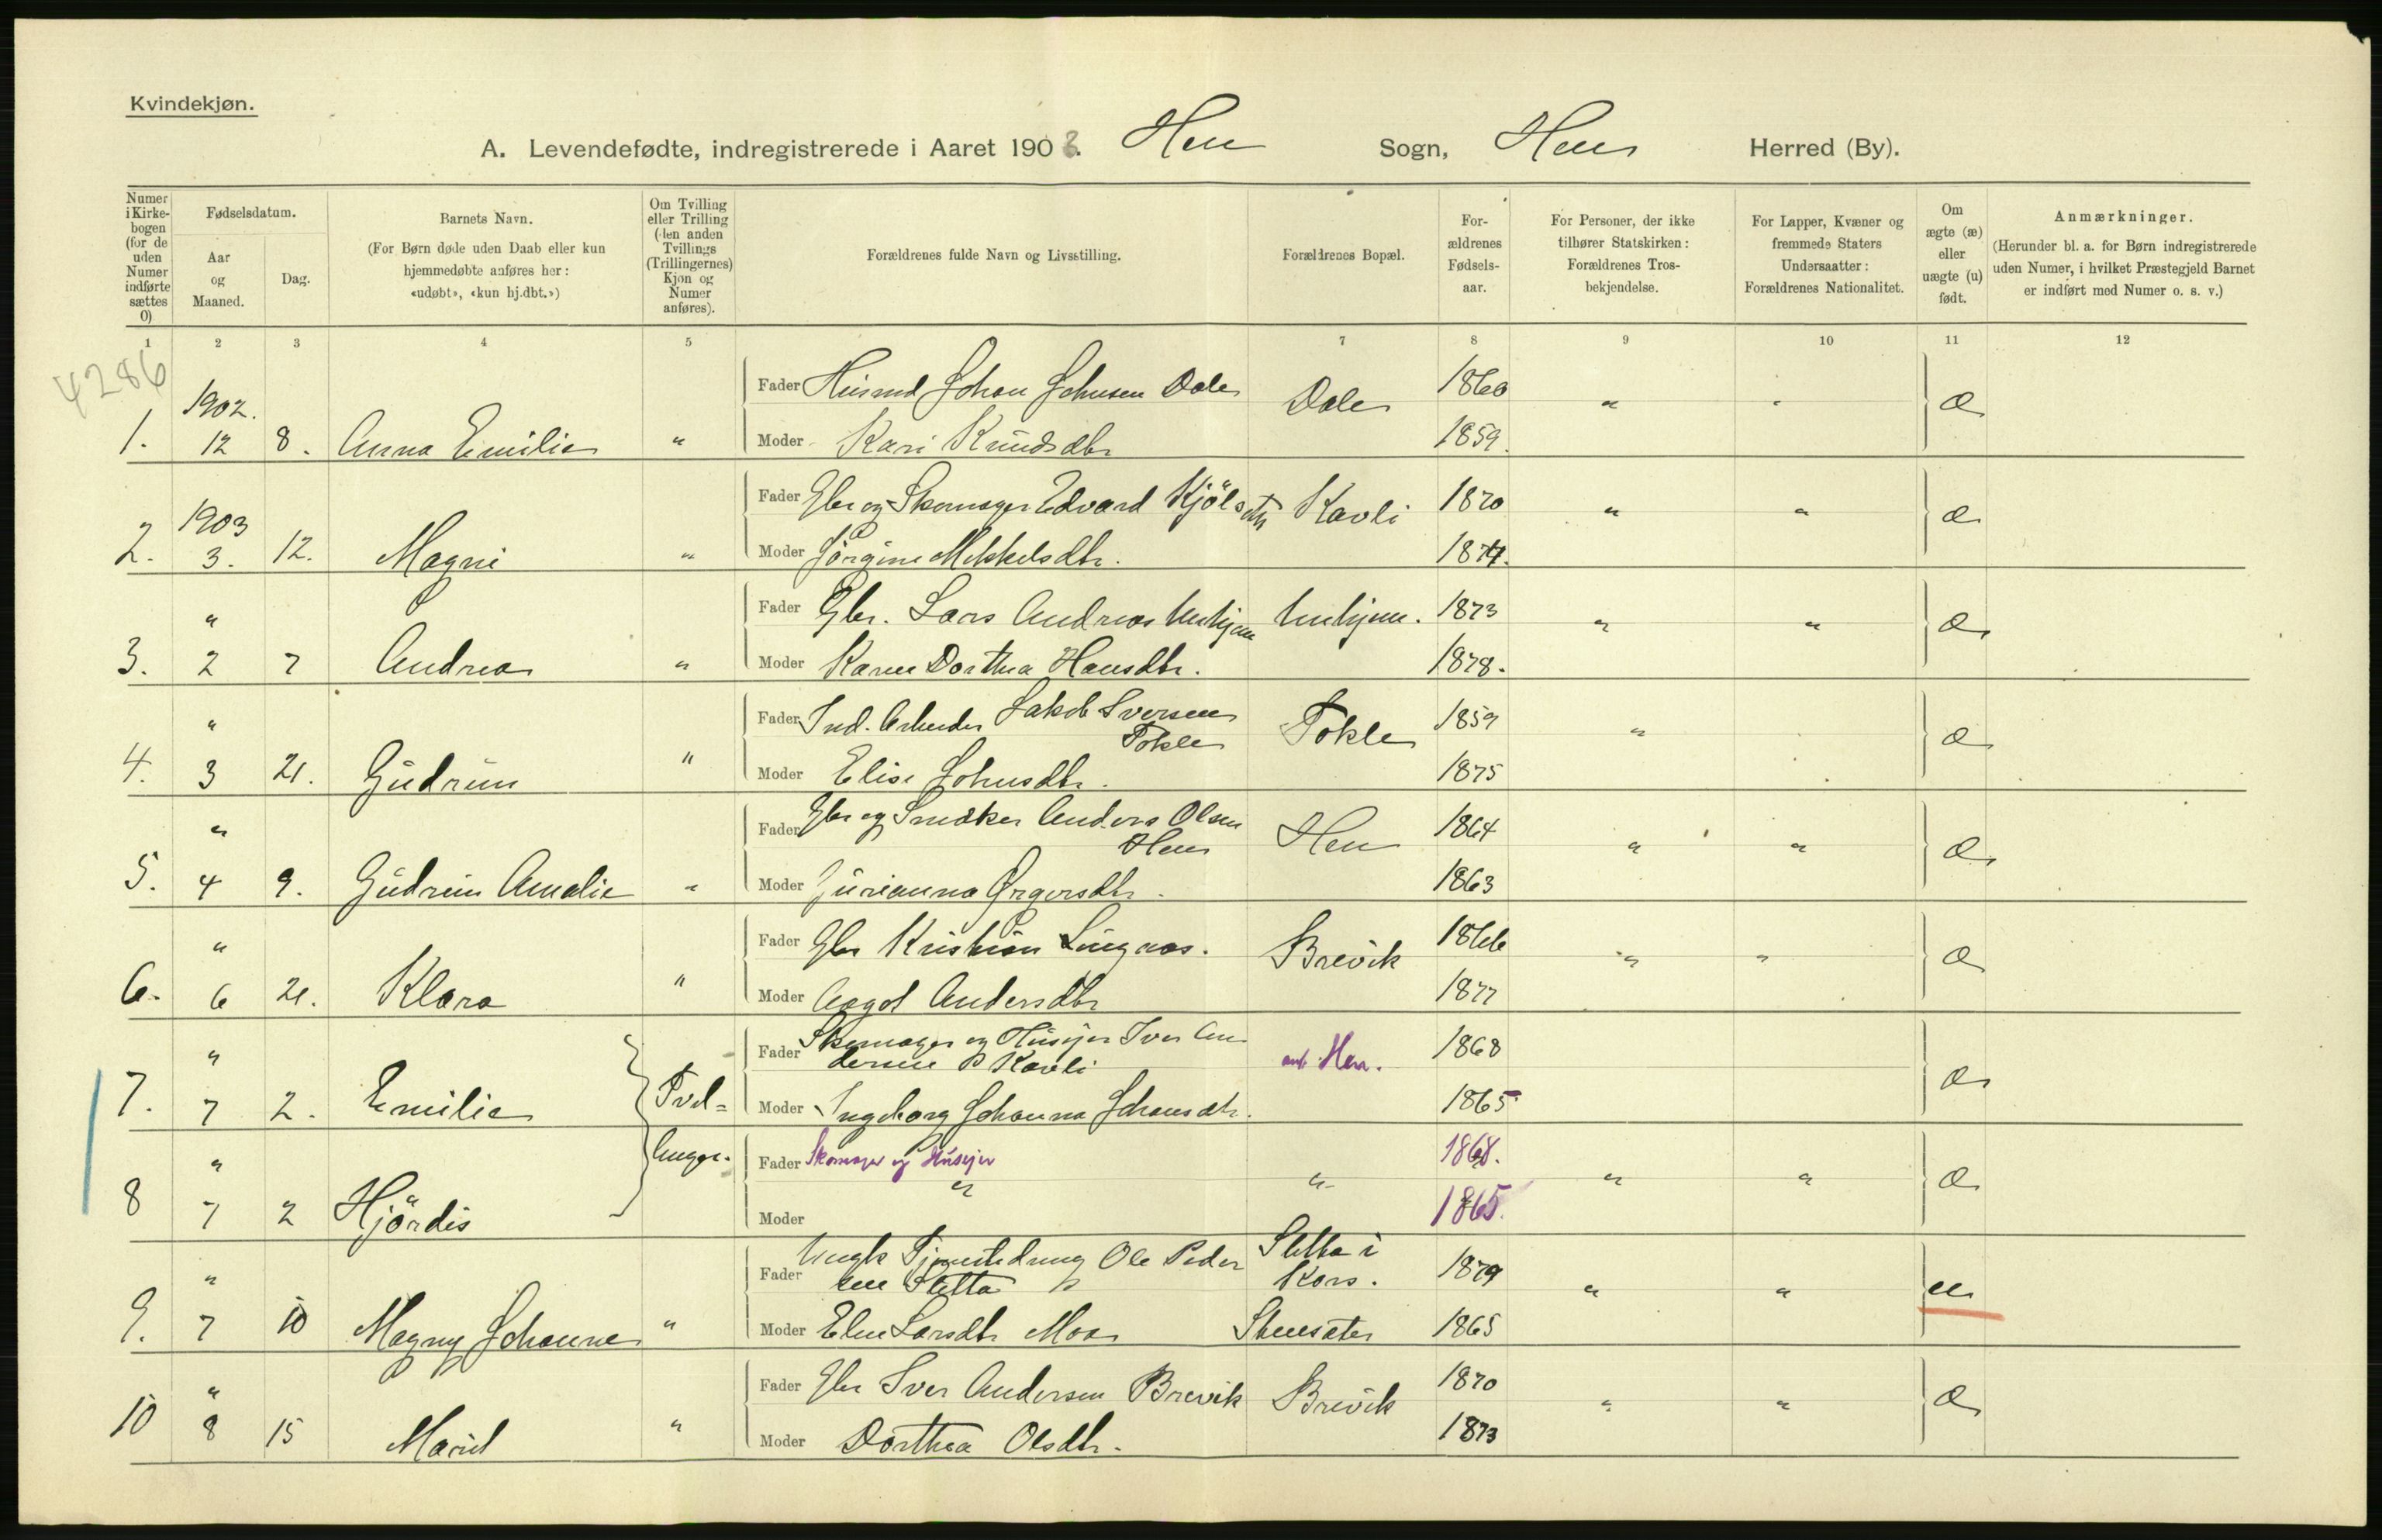 Kvindekjøn.
A. Levendefødte, indregistrerede i Aaret 1903. Hen Sogn, Hen Herred (By).
Numer i Kirkebogen (for de uden Numer indførte sættes 0)
Fødselsdatum.
Aar og Maaned.
Dag.
Barnets Navn.
(For Børn døde uden Daab eller kun hjemmedøbte anføres her: «udøbt», «kun hj.dbt.»)
Om Tvilling eller Trilling (den anden Tvillings (Trillingernes) Kjøn og Numer anføres).
Forældrenes fulde Navn og Livsstilling.
Forældrenes Bopæl.
Forældrenes Fødselsaar.
For Personer, der ikke tilhører Statskirken: Forældrenes Trosbekjendelse.
For Lapper, Kvæner og fremmede Staters Undersaatter: Forældrenes Nationalitet.
Om ægte (æ) eller uægte (u) født.
Anmærkninger.
(Herunder bl. a. for Børn indregistrerede uden Numer, i hvilket Præstegjeld Barnet er indført med Numer o. s. v.)
1 2 3 4 5 7 8 9 10 11 12
4286
1902.
Fader Husmd Johan Johnsen Dale Dale 1860 " " æ
1. 12 8. Anna Emilie " Moder Kari Knudsdtr 1859.
1903
Fader Gbr og Skomager Edvard Kjölseth Kavli 1870 " " æ
2. 3. 12. Magni " Moder Jörgine Mikkelsdtr. 1874.
"
Fader Gbr. Lars Andreas Unhjem Unhjem. 1873 " " æ
3. 2 7 Andrea " Moder Karen Dorthea Hansdtr. 1878.
"
Fader Ind. Arbeider Jakob Iversen Tokle Tokle 1859 " æ
4. 3 21. Gudrun " Moder Elise Johnsdtr. 1875
"
Fader Gbr og Snedker Anders Olsen Hen Hen 1864 " " æ
5. 4 9. Gudrun Amalie " Moder Jurianna 1863
"
Fader Gbr Kristian Lingaas. Brevik 1866 " " æ
6. 6 21. Klara " Moder Aagot Andersdtr 1877
"
Fader Skomager og Husejer Iver Andersen Kavli Hen. 1868 æ
7. 7 2. Emilie Tvil= Moder Ingeborg Johanna Johansdtr. 1865
" linger. Fader Skomager og Husejer " " 1868. " " æ
8 7 2 Hjördis Moder 1865.
"
Fader Ungk Tjenestedreng Ole Pedersen Sletta Sletta i Kors. 1879 " " u
9. 7 10 Magny Johanne " Moder Elen Larsdtr Moa Stensæter 1865
"
Fader Gbr Iver Andersen Brevik Brevik 1870 " " æ
10 8 15 Marit " Moder Dorthea Olsdtr. 1873